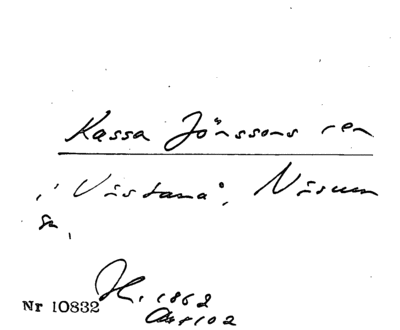 Kassa Jönssons ren
i "Vistana", Nisum
sn,
H. 1862
Nr 10832